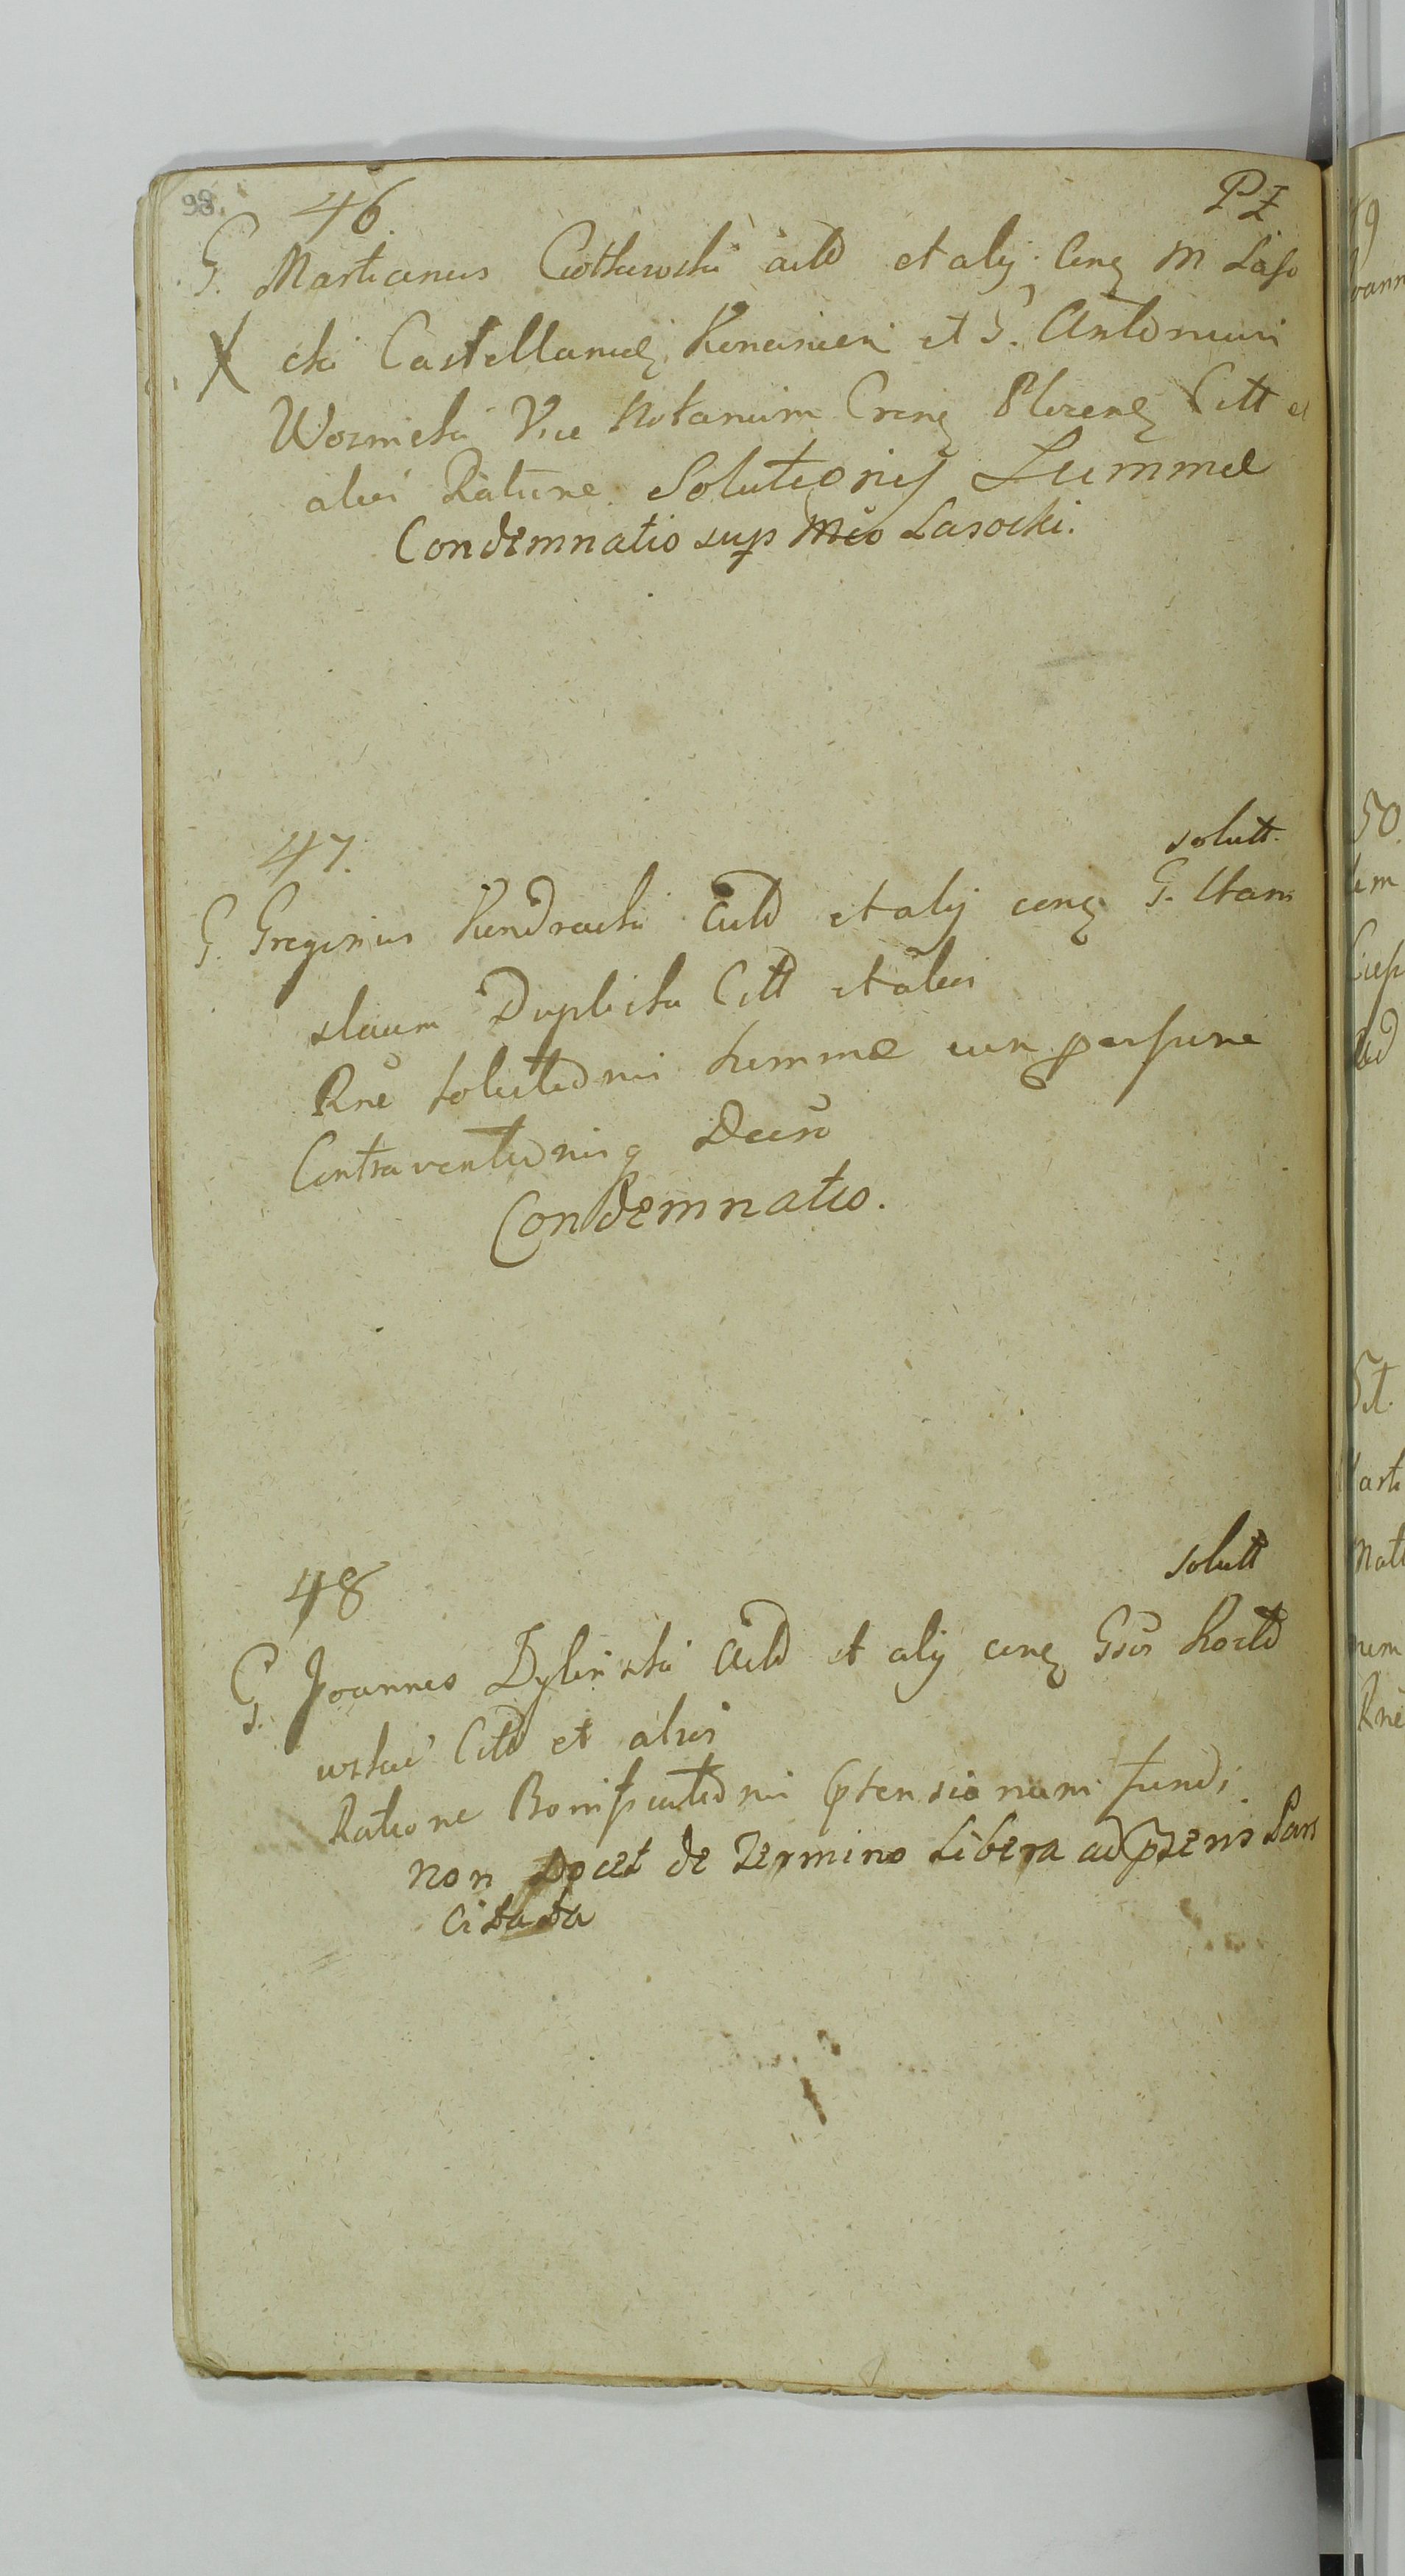 98.
46. PZ
G. Martianus Ciotkowski actō et alij. Cong M Laso
X cki Castellanū Konarien et G. Antonium
Woznicki Vice Notarium Cren Plocen Citt et
alios Ratione Solutionis Summæ
Condemnatio sup Mco Lasocki.
47. solutt.
G. Gregorius Kendracki actō et alij cong G. Stani
slaum Duplicki Citt et alios
Rne solutionis summæ
Contraventionis Decro
Condemnatio.
48 solutt
G. Joannes Dylinski Actō et alij cong Gsos
Citō et alios
Ratione ptensionum fundi
non docet de Termino Libera ad psens Pars
citata